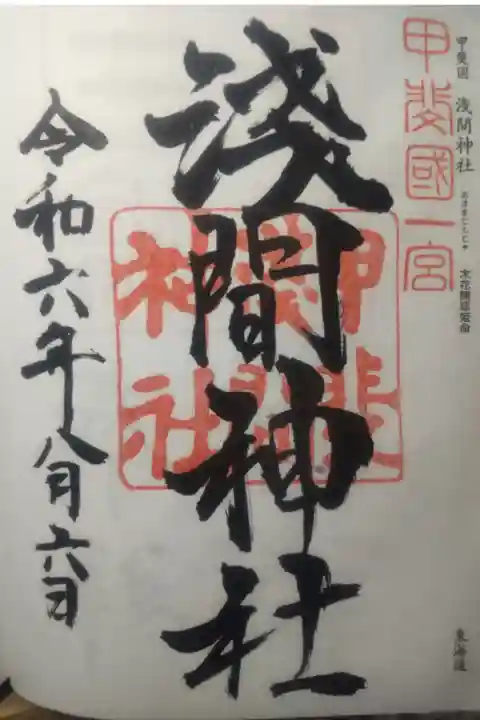 甲斐國一宮
甲斐国 浅間神社 あさまじんじゃ 木花開耶姫命
東海道
淺間神社
甲斐
淺間
神社
令和六年八月六日